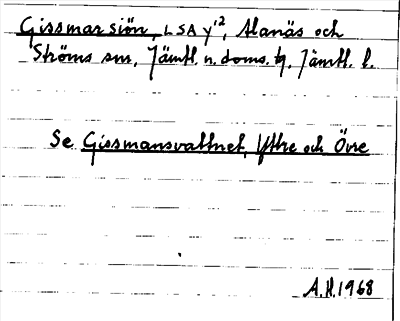 Gissmarsiön, LSA y'², Alanäs och
Ströms snr, Jämtl. n. doms. tg, Jämtl. l.
Se Gissmansvattnet, Yttre och Övre
A.H. 1968